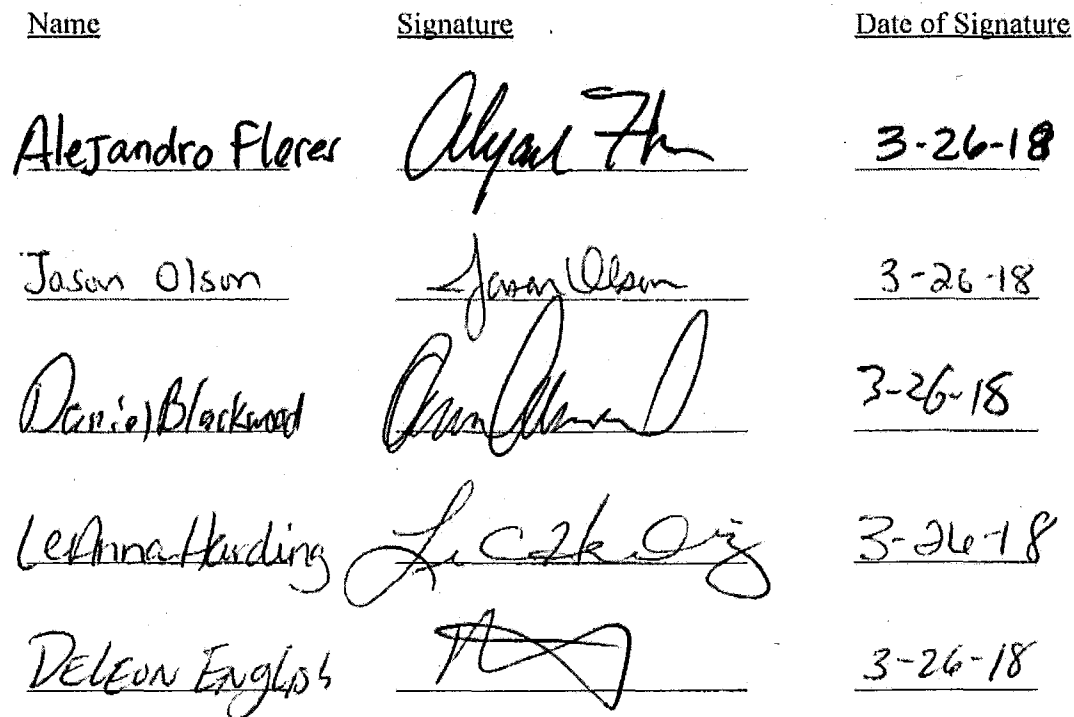 Name Signature Date of Signature
Alejandro Flores 3-26-18
Jason Olson Jason Olson 3-26-18
Daniel Blackwood 3-26-18
LeAnna Harding 3-26-18
DELEON ENGLISH 3-26-18